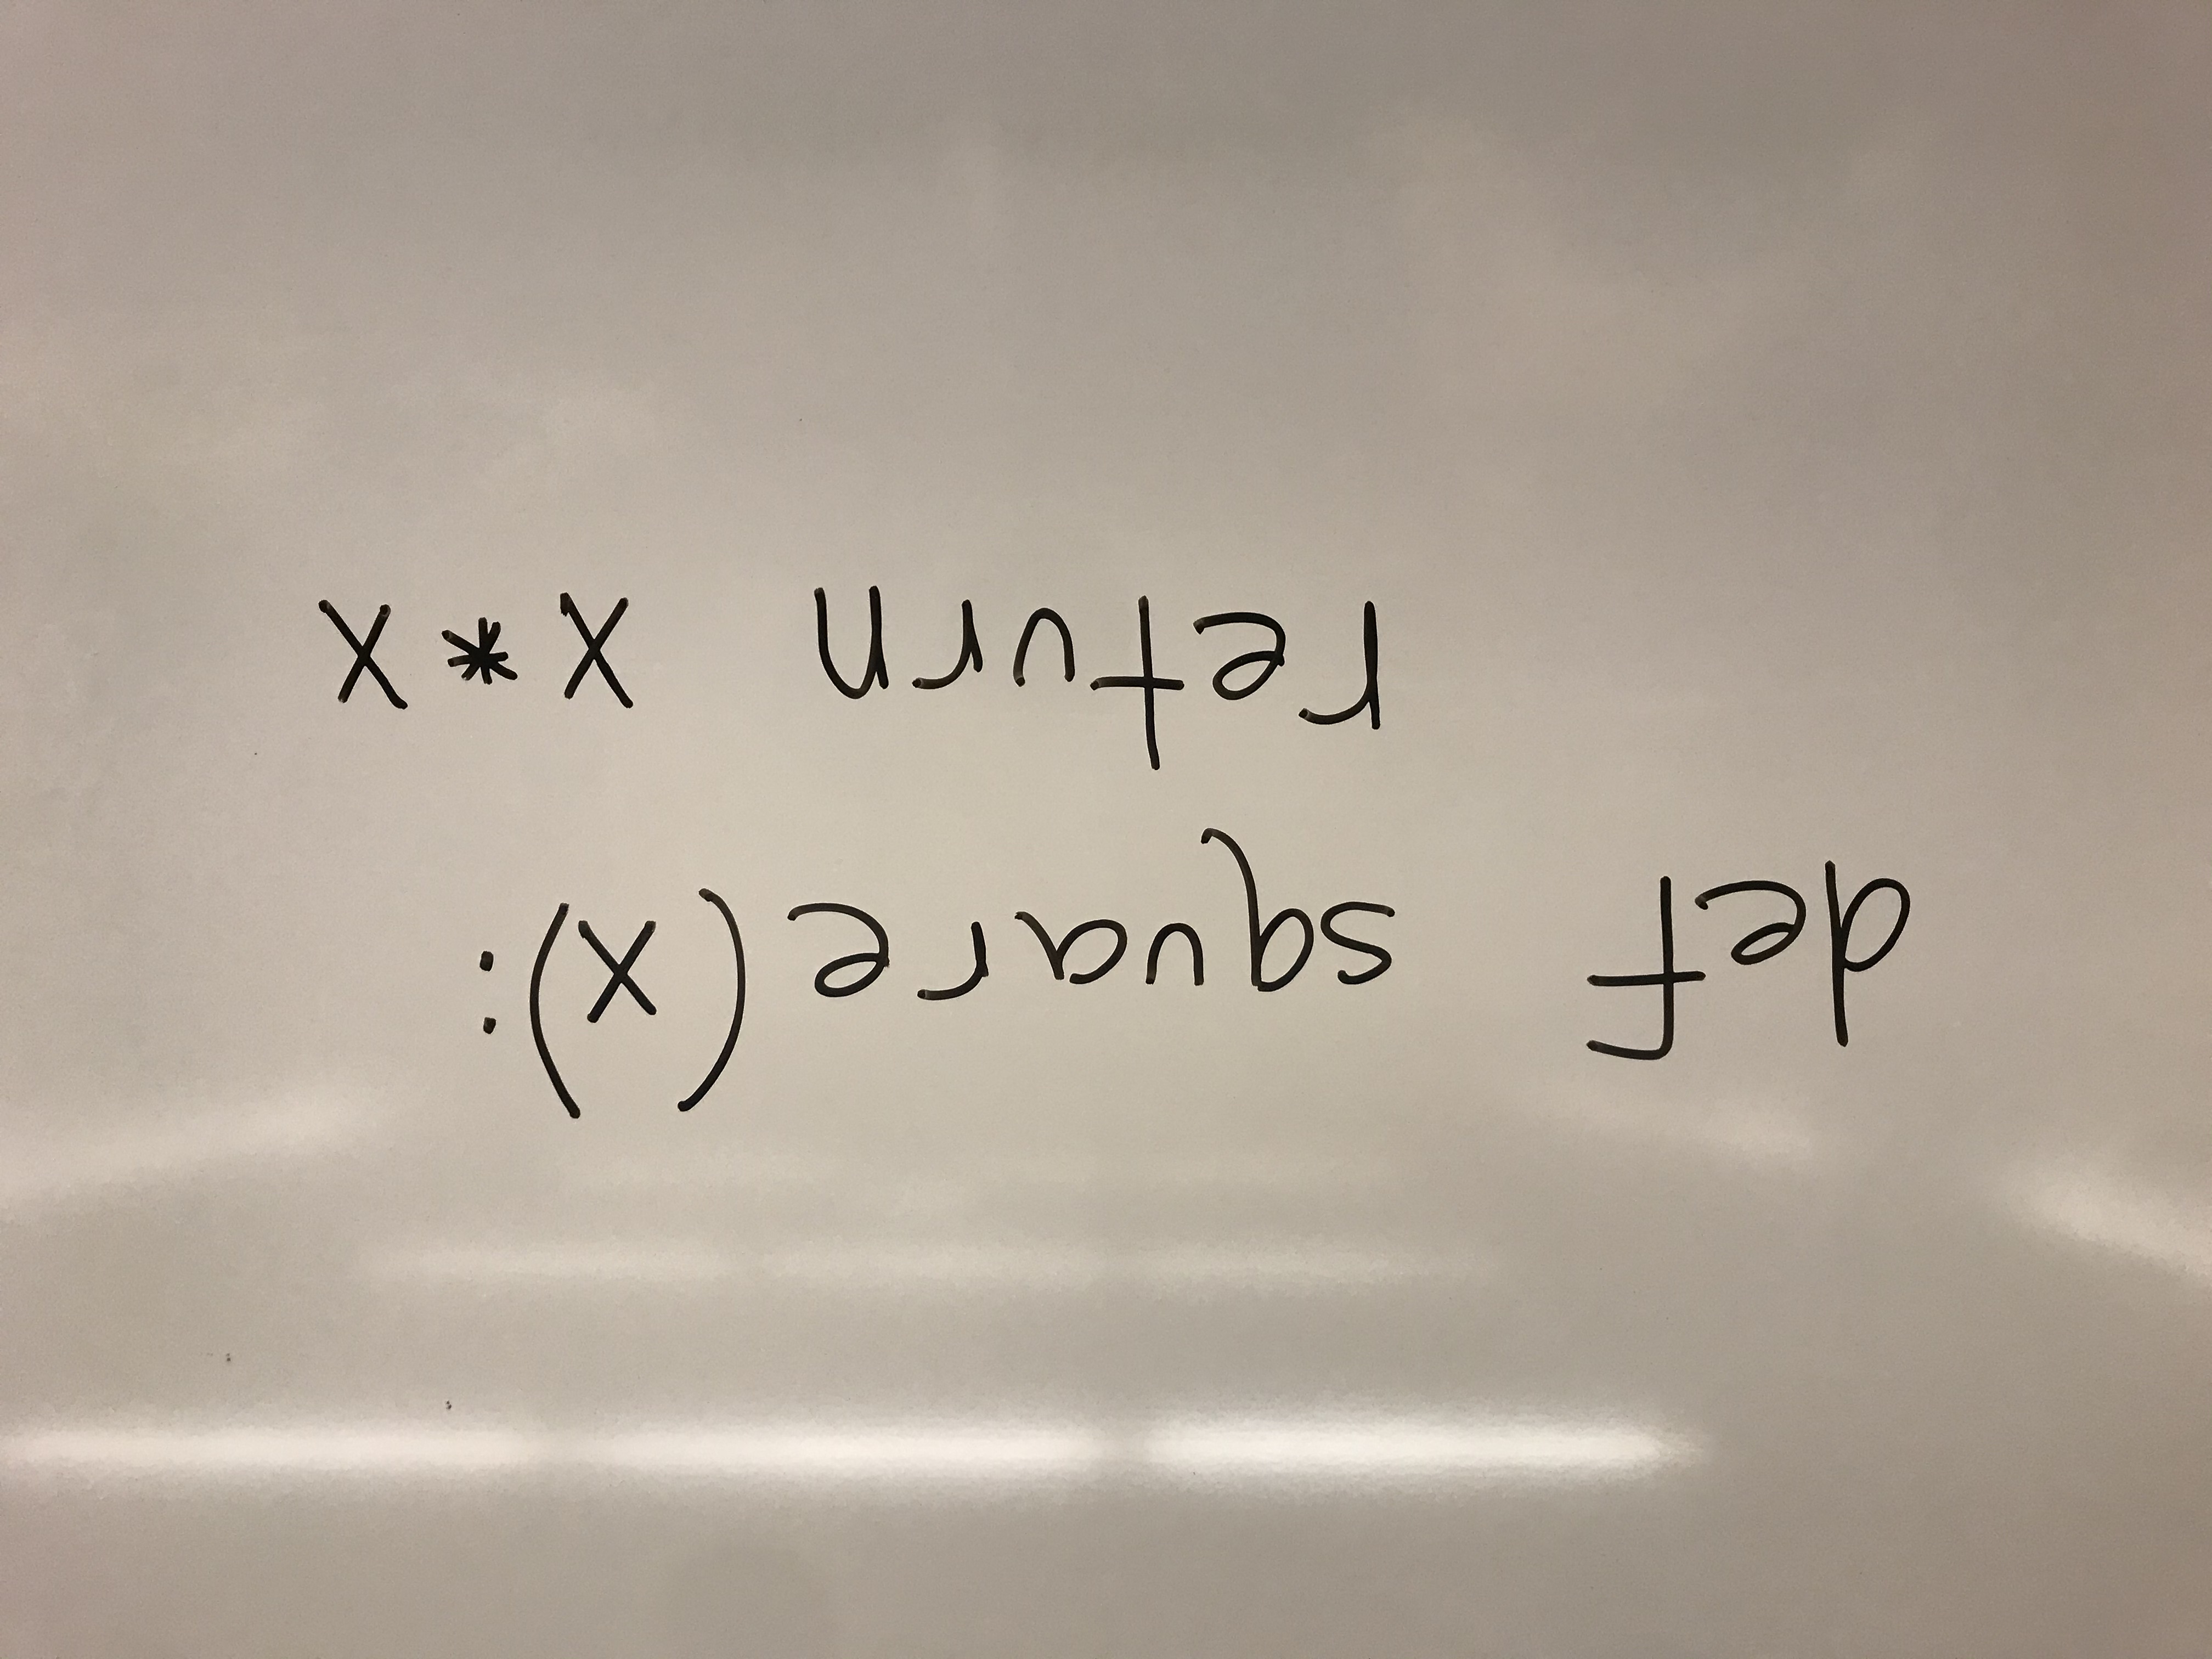 def square(x):
    return x*x